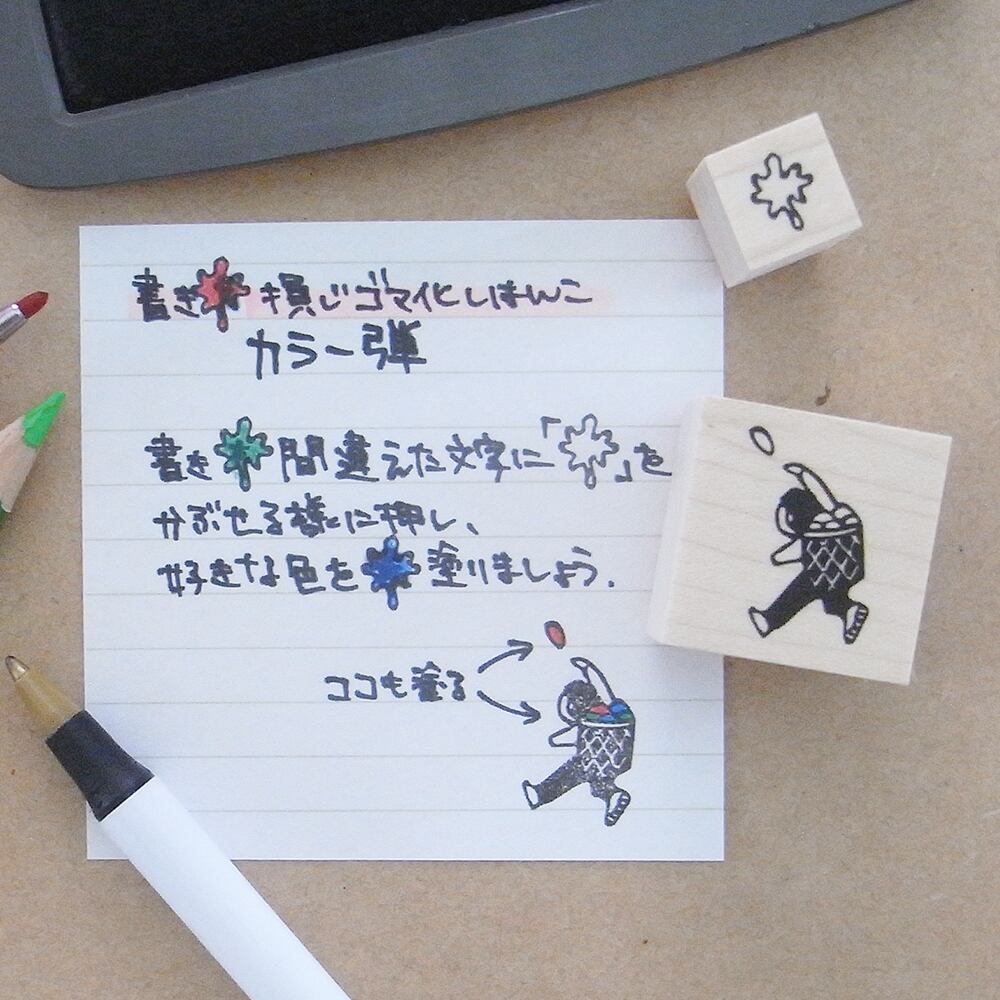 書き損じゴマ化しはんこ
カラー弾
書き間違えた文字に「」を
かぶせる様に押し、
好きな色を塗りましょう.
ココも塗る